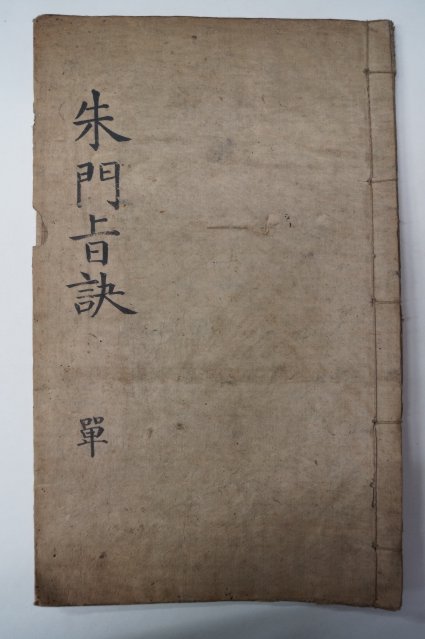 朱門旨訣
單